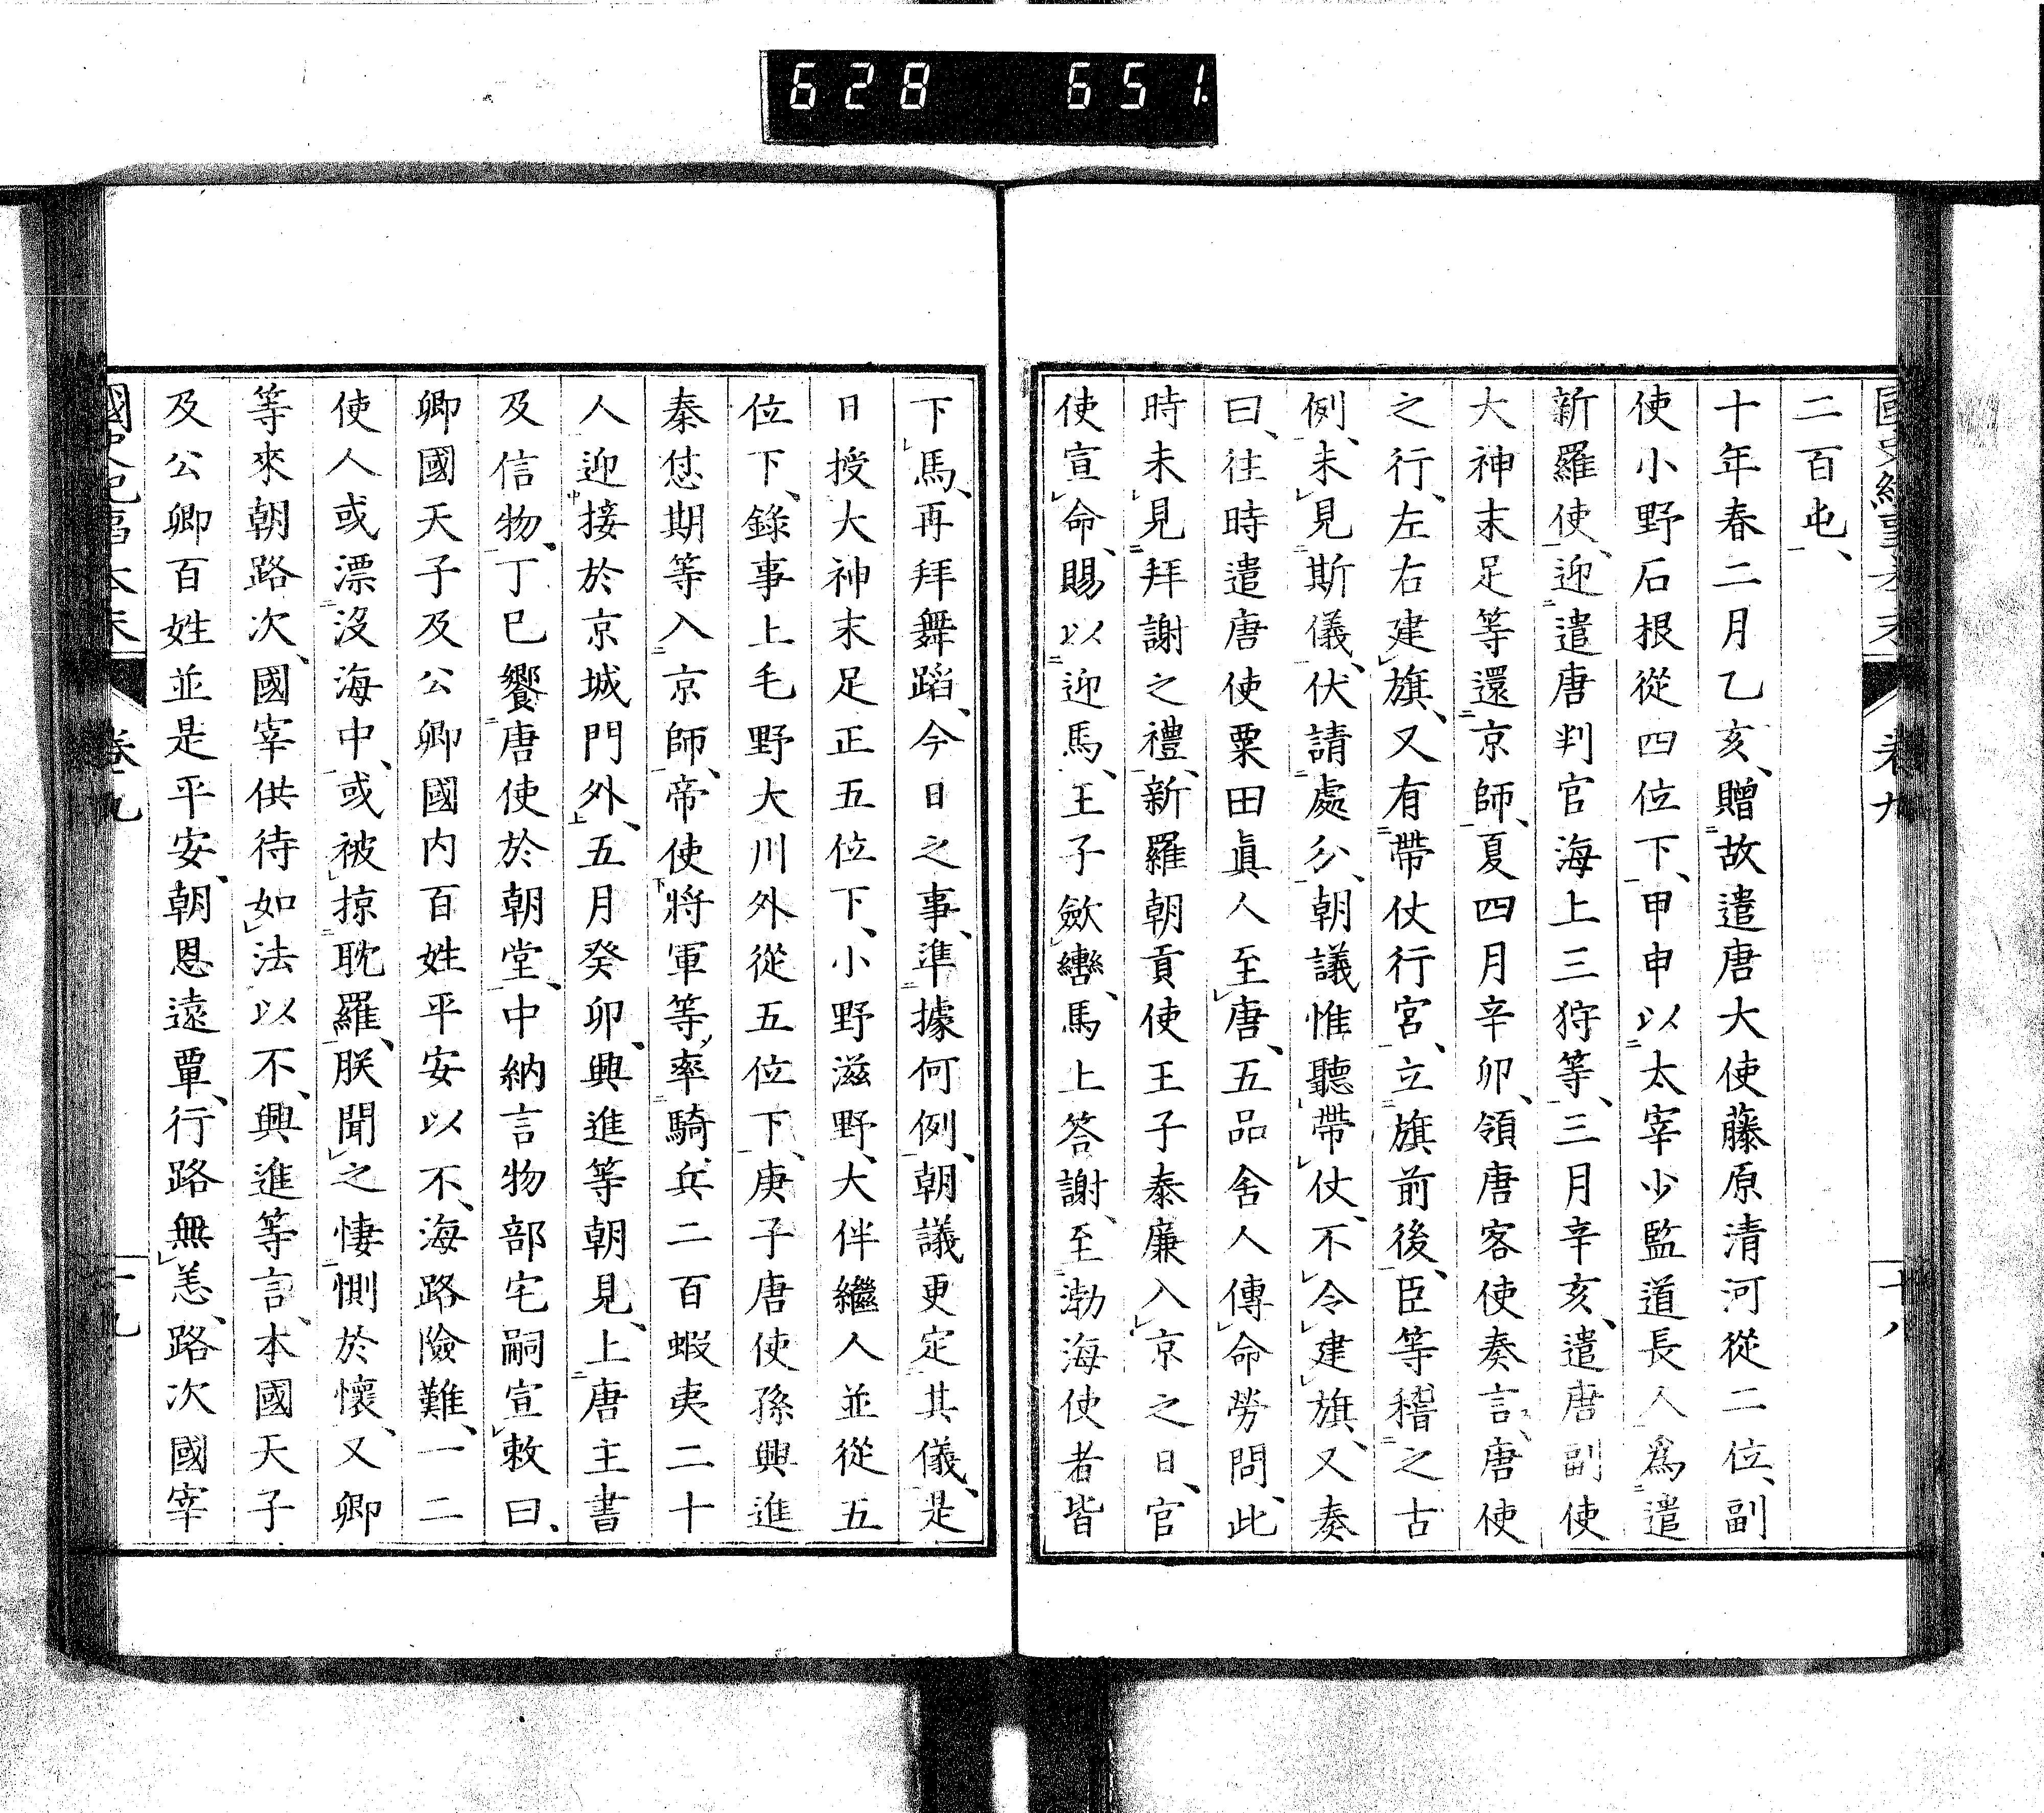 628 651.
二百屯、
十年春二月乙亥、贈故遣唐大使藤原清河從二位、副
使小野石根從四位下、甲申以太宰少監道長人爲遣
新羅使、迎遣唐判官海上三狩等、三月辛亥、遣唐副使
大神末足等還京師、夏四月辛卯、領唐客使奏言、唐使
之行、左右建旗、又有帶仗行官、立旗前後、臣等稽之古
例、未見斯儀、伏請處分、朝議惟聽帶仗、不令建旗、又奏
曰、往時遣唐使粟田眞人至唐、五品舍人傳命勞問、此
時未見拜謝之禮、新羅朝貢使王子泰廉入京之日、官
使宣命、賜以迎馬、王子歛轡、馬上答謝、至渤海使者皆
下馬、再拜舞蹈、今日之事、準據何例、朝議更定其儀、是
日授大神末足正五位下、小野滋野、大伴繼人並從五
位下、錄事上毛野大川外從五位下、庚子唐使孫興進
秦怤期等入京師、帝使將軍等、率騎兵二百蝦夷二十
人迎接於京城門外、五月癸卯、興進等朝見、上唐主書
及信物、丁巳饗唐使於朝堂、中納言物部宅嗣宣敕曰、
卿國天子及公卿國内百姓平安以不、海路險難、一二
使人或漂沒海中、或被掠耽羅、朕聞之悽惻於懷、又卿
等來朝路次、國宰供待如法以不、興進等言、本國天子
及公卿百姓並是平安、朝恩遠覃、行路無恙、路次國宰
卷九